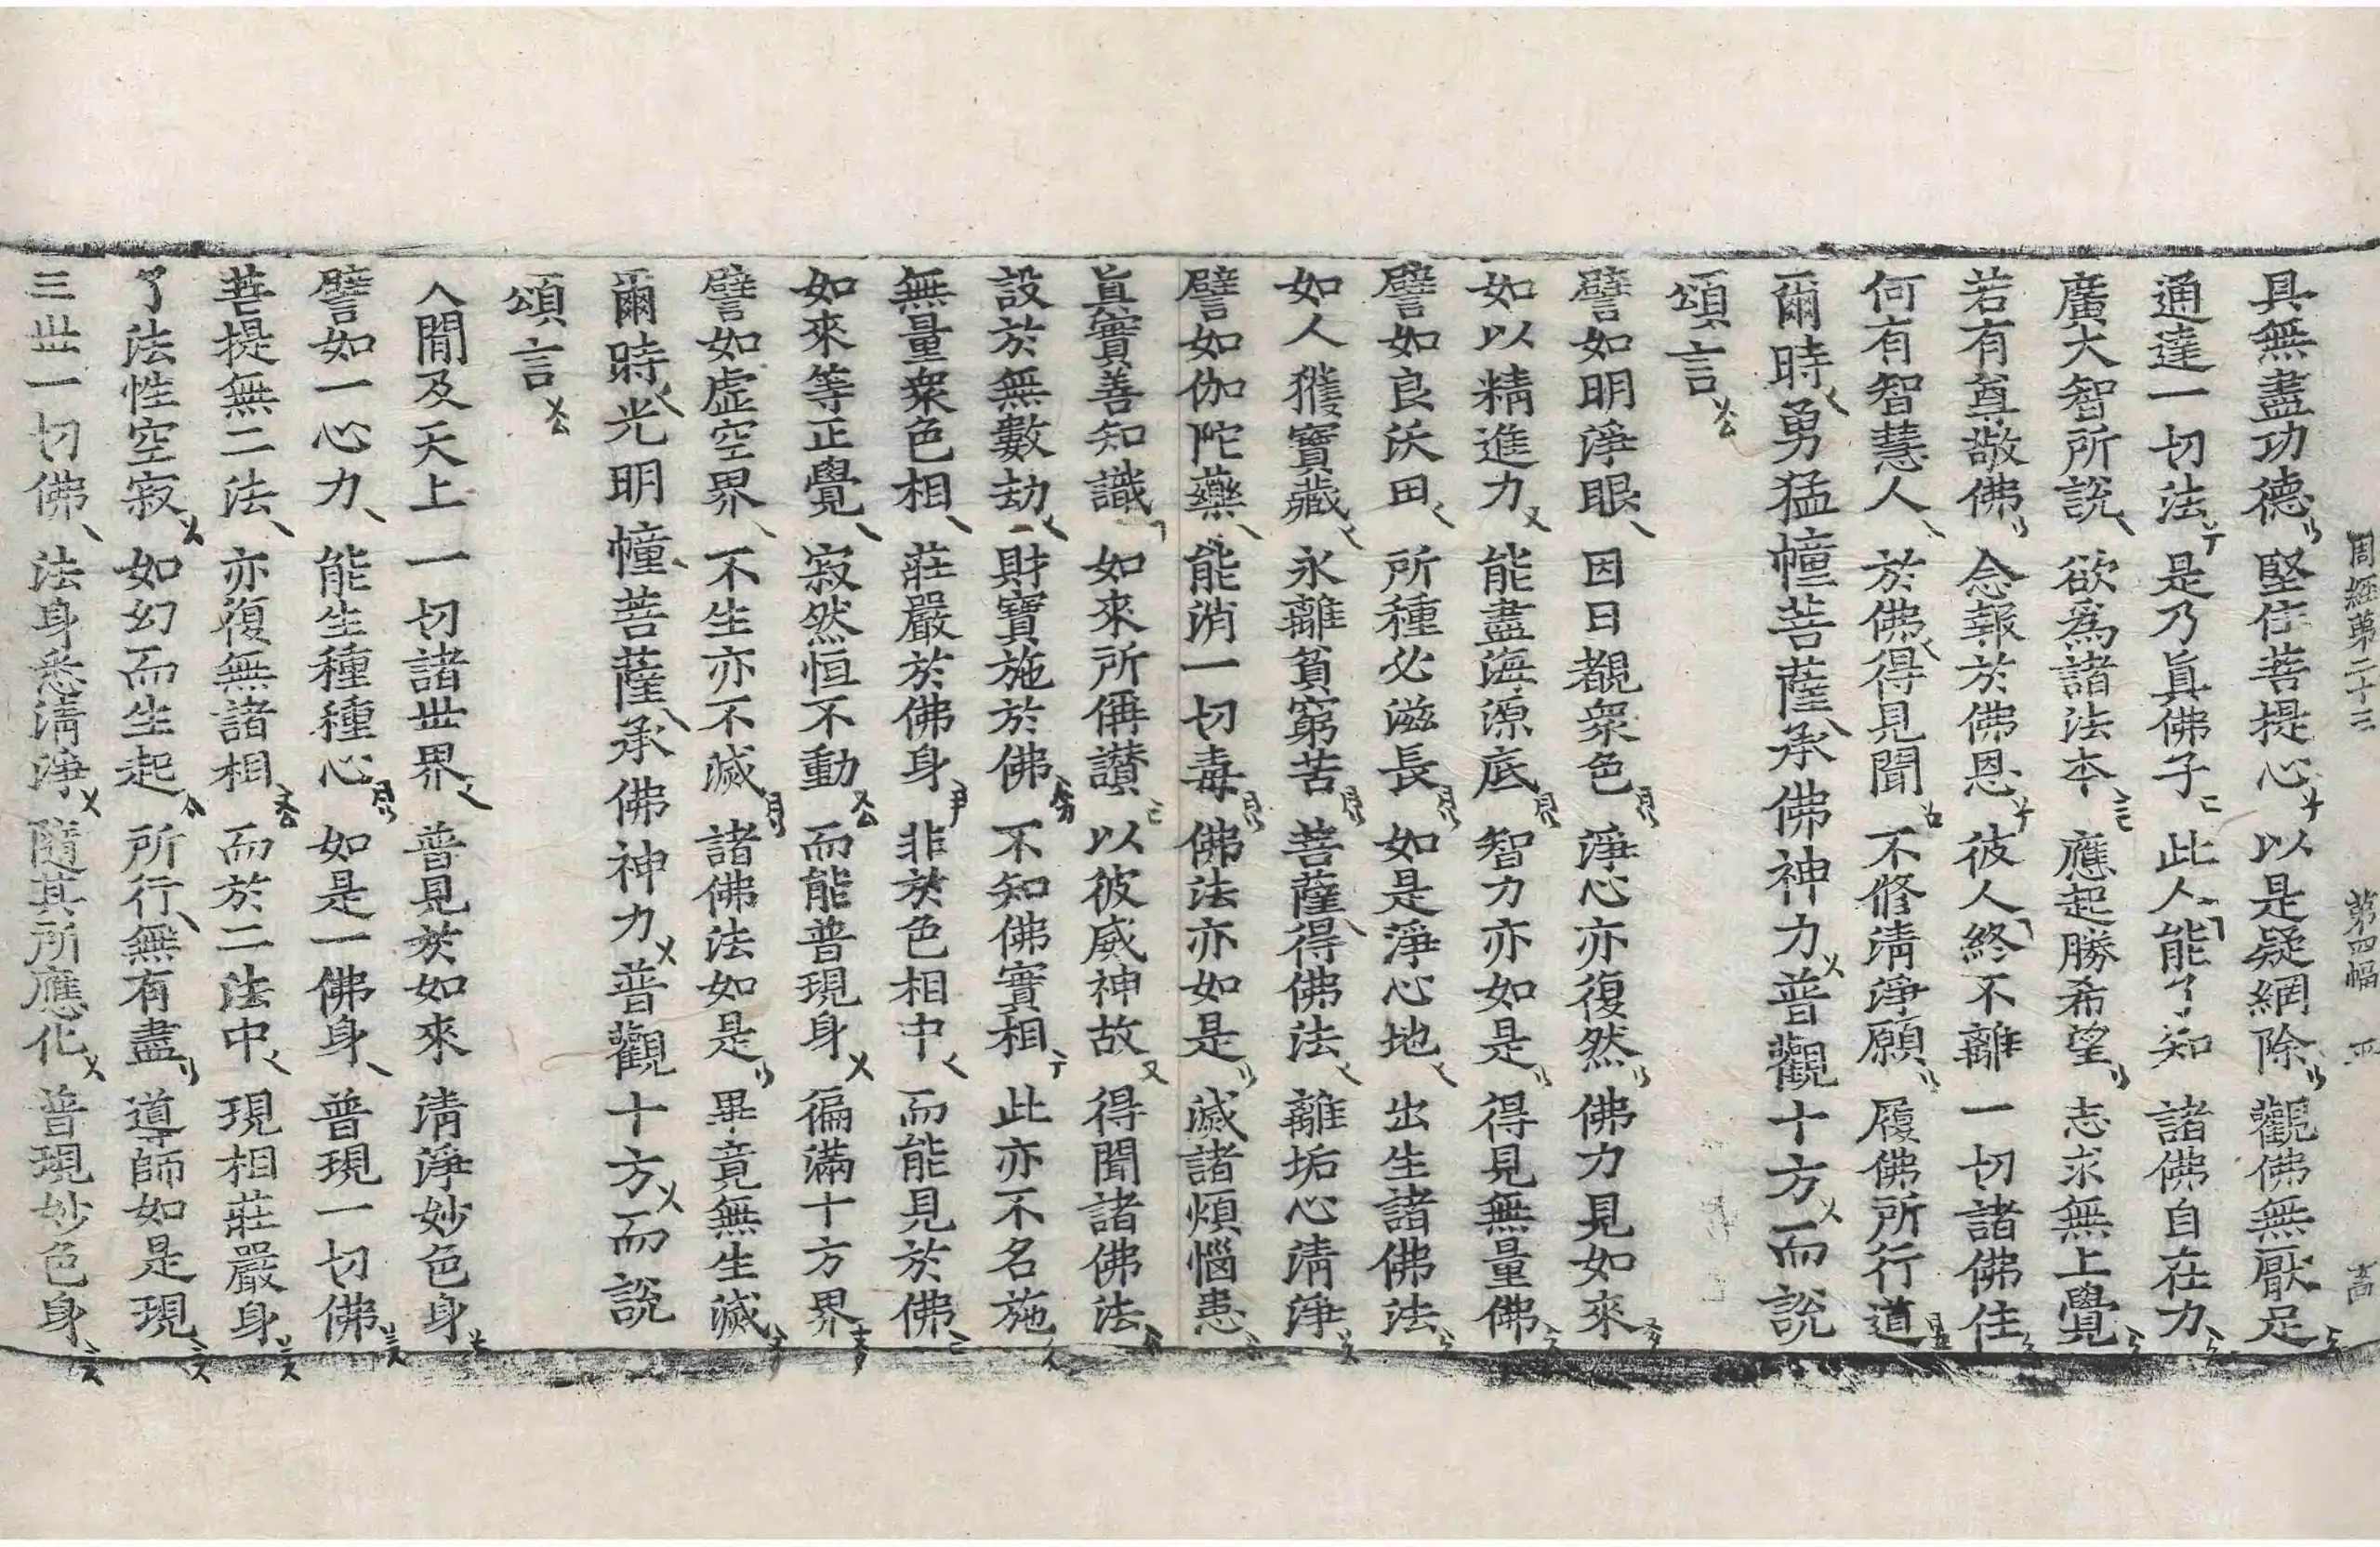 周經第二十三 第四幅
具無盡功德 堅住菩提心 以是疑網除 觀佛無厭足
通達一切法 是乃眞佛子 此人能了知 諸佛自在力
廣大智所說 欲爲諸法本 應起勝希望 志求無上覺
若有尊敬佛 念報於佛恩 彼人終不離 一切諸佛住
何有智慧人 於佛得見聞 不修清淨願 履佛所行道
爾時勇猛幢菩薩承佛神力普觀十方而說
頌言
譬如明淨眼 因日覩衆色 淨心亦復然 佛力見如來
如以精進力 能盡海源底 智力亦如是 得見無量佛
譬如良沃田 所種必滋長 如是淨心地 出生諸佛法
如人獲寶藏 永離貧窮苦 菩薩得佛法 離垢心清淨
譬如伽陀藥 能消一切毒 佛法亦如是 滅諸煩惱患
眞實善知識 如來所偁讃 以彼威神故 得聞諸佛法
設於無數劫 財寶施於佛 不知佛實相 此亦不名施
無量衆色相 莊嚴於佛身 非於色相中 而能見於佛
如來等正覺 寂然恒不動 而能普現身 徧滿十方界
譬如虛空界 不生亦不滅 諸佛法如是 畢竟無生滅
爾時光明幢菩薩承佛神力普觀十方而說
頌言
人間及天上 一切諸世界 普見於如來 清淨妙色身
譬如一心力 能生種種心 如是一佛身 普現一切佛
菩提無二法 亦復無諸相 而於二法中 現相莊嚴身
了法性空寂 如幻而生起 所行無有盡 導師如是現
三世一切佛 法身悉清淨 隨其所應化 普現妙色身